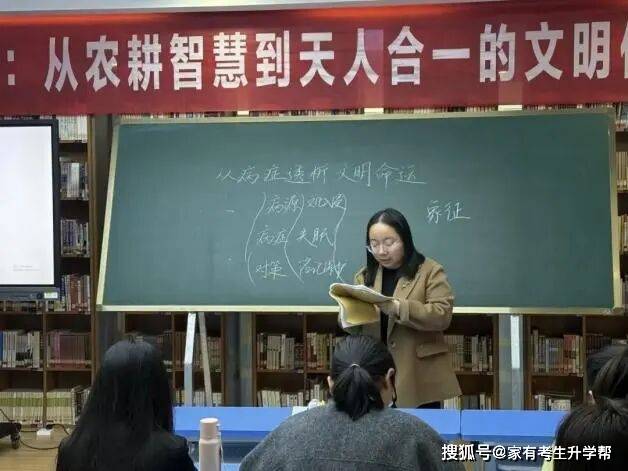 ：从农耕智慧到天人合一的文明
从病症透析文明命运
病源
象征
病症 失眠
对策
搜狐号@家有考生升学帮